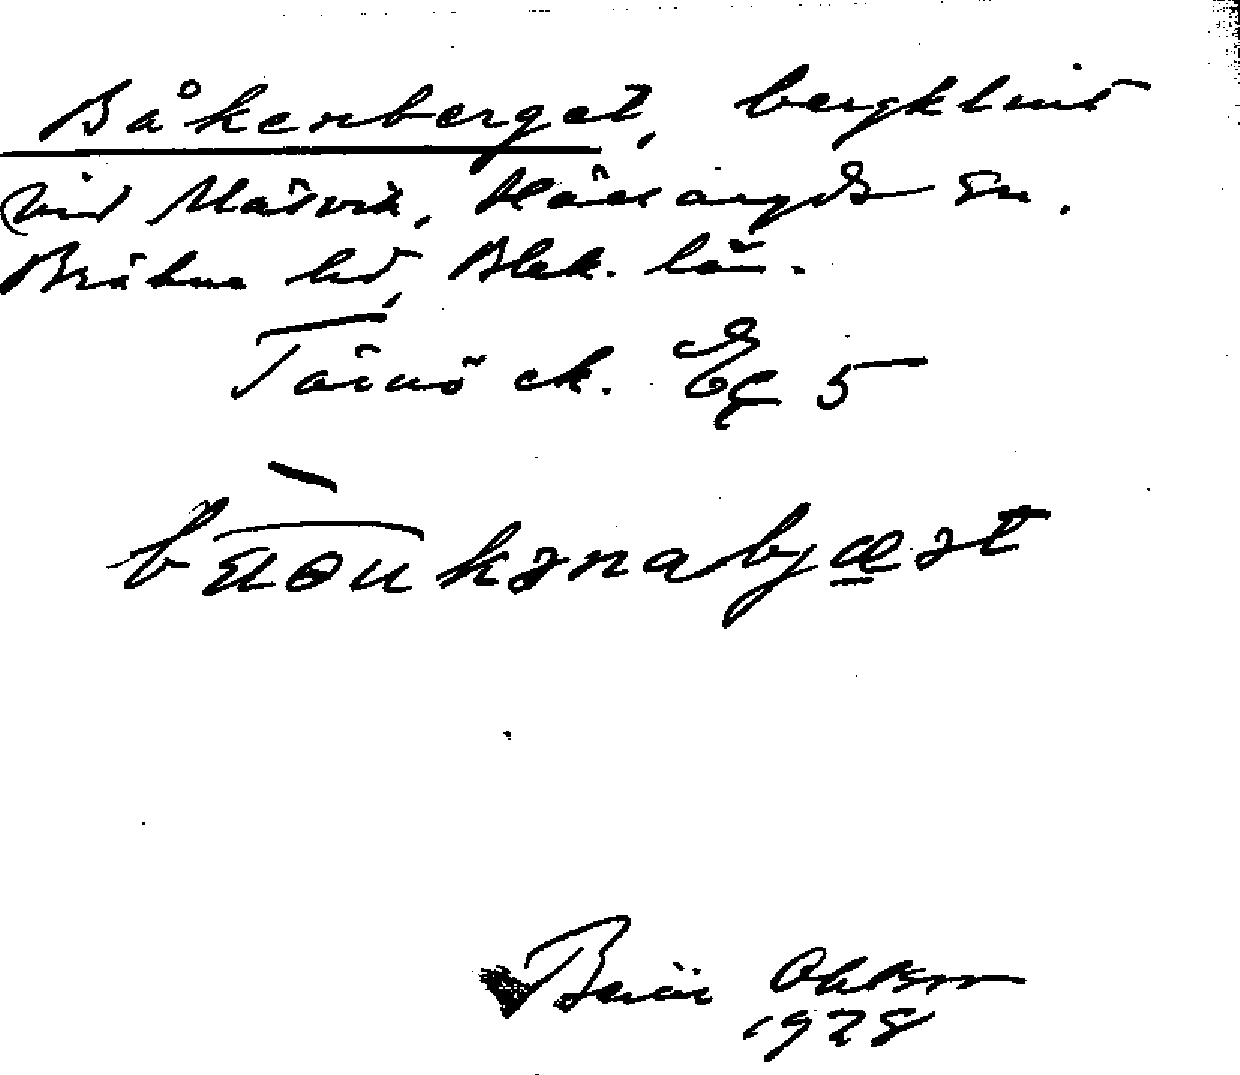 Båkenberget, bergklint
vid Matvik, Hällaryds sn.
Bräkne hd, Blek. län.
Tärnö ek. Eg 5
baəukənabjæət
Bertil Ohlsson
1928